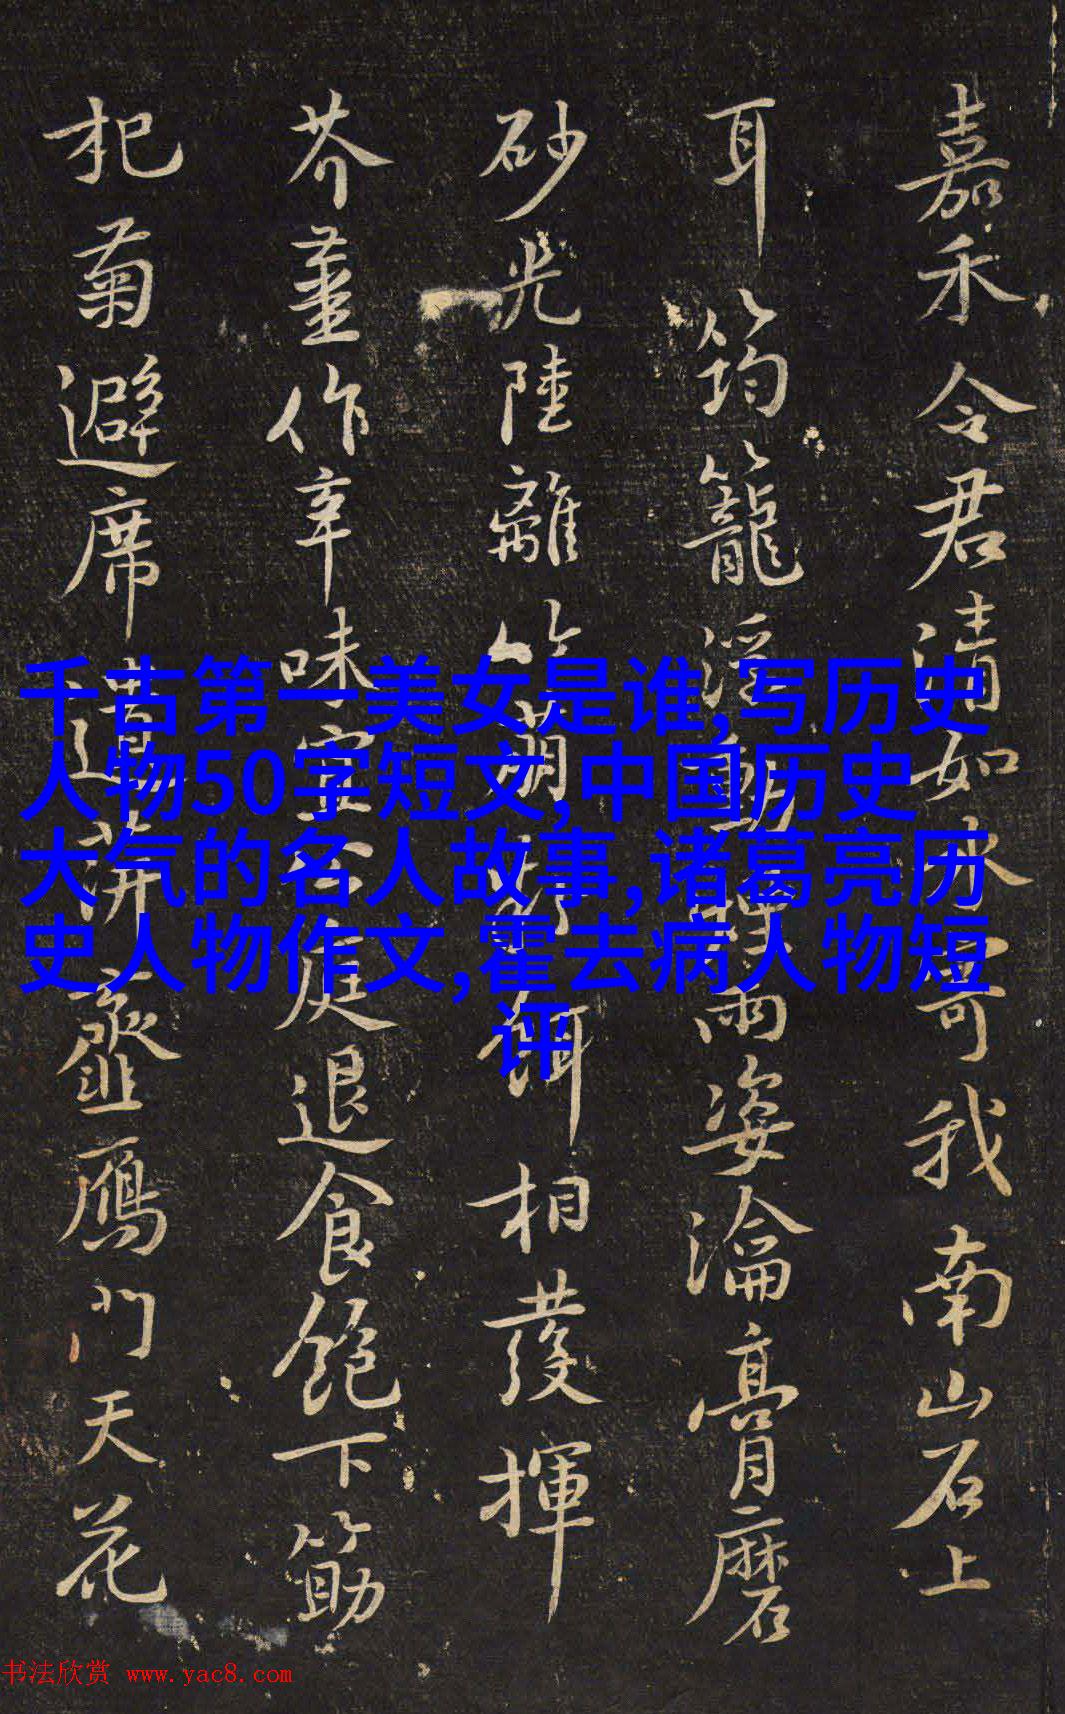 嘉禾令君清如水寄我南山石上
耳筠籠浮動 雨姿瀹膏磨
砂光陸離 萌 餌相發揮
芥薑作辛味宜 庭退食飽下筯
杞菊避席 遁 虀鴈門天花
千古第一美女是谁,写历史
人物50字短文,中国历史
大气的名人故事,诸葛亮历
史人物作文,霍去病人物短
评
书法欣赏 www.yac8.com